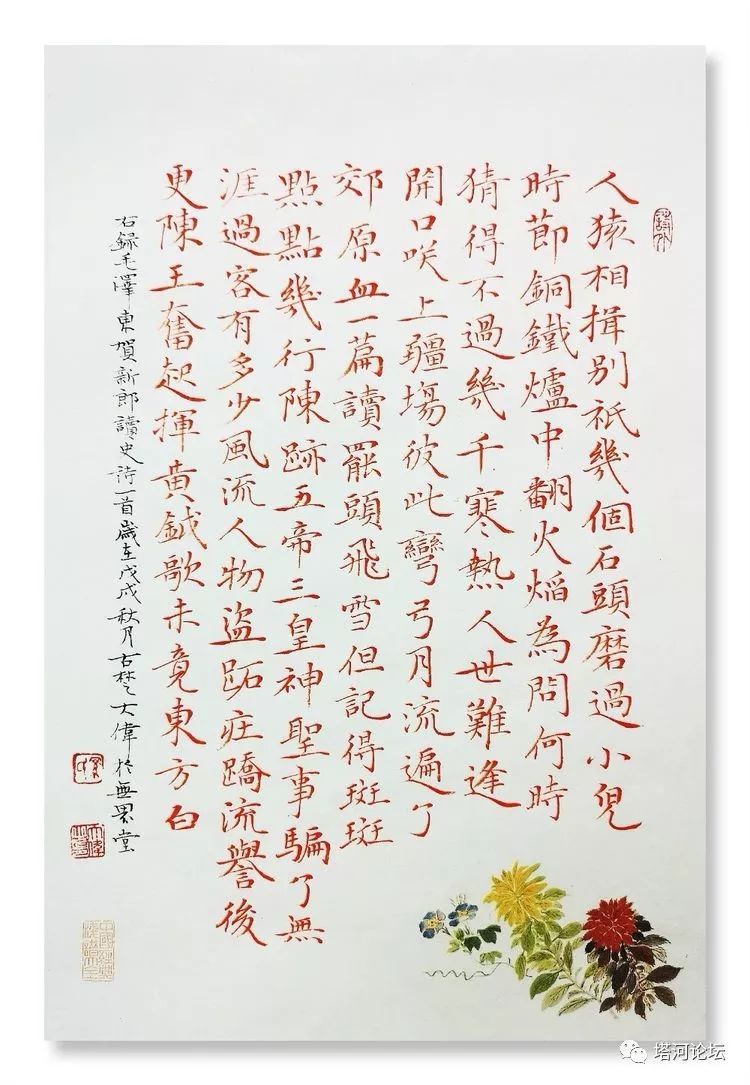 人猿相揖別祇幾個石頭磨過小兒
時節銅鐵爐中翻火焰為問何時
猜得不過幾千寒熱人世難逢
開口咲上疆場彼此彎弓月流遍了
郊原血一篇讀罷頭飛雪但記得斑斑
點點幾行陳跡五帝三皇神聖事騙了無
涯過客有多少風流人物盜跖庄蹻流譽後
更陳王奮起揮黃鉞歌未竟東方白
右録毛澤東賀新郎讀史詩一首歲在戊戌秋月古楚大偉於無界堂
塔河论坛